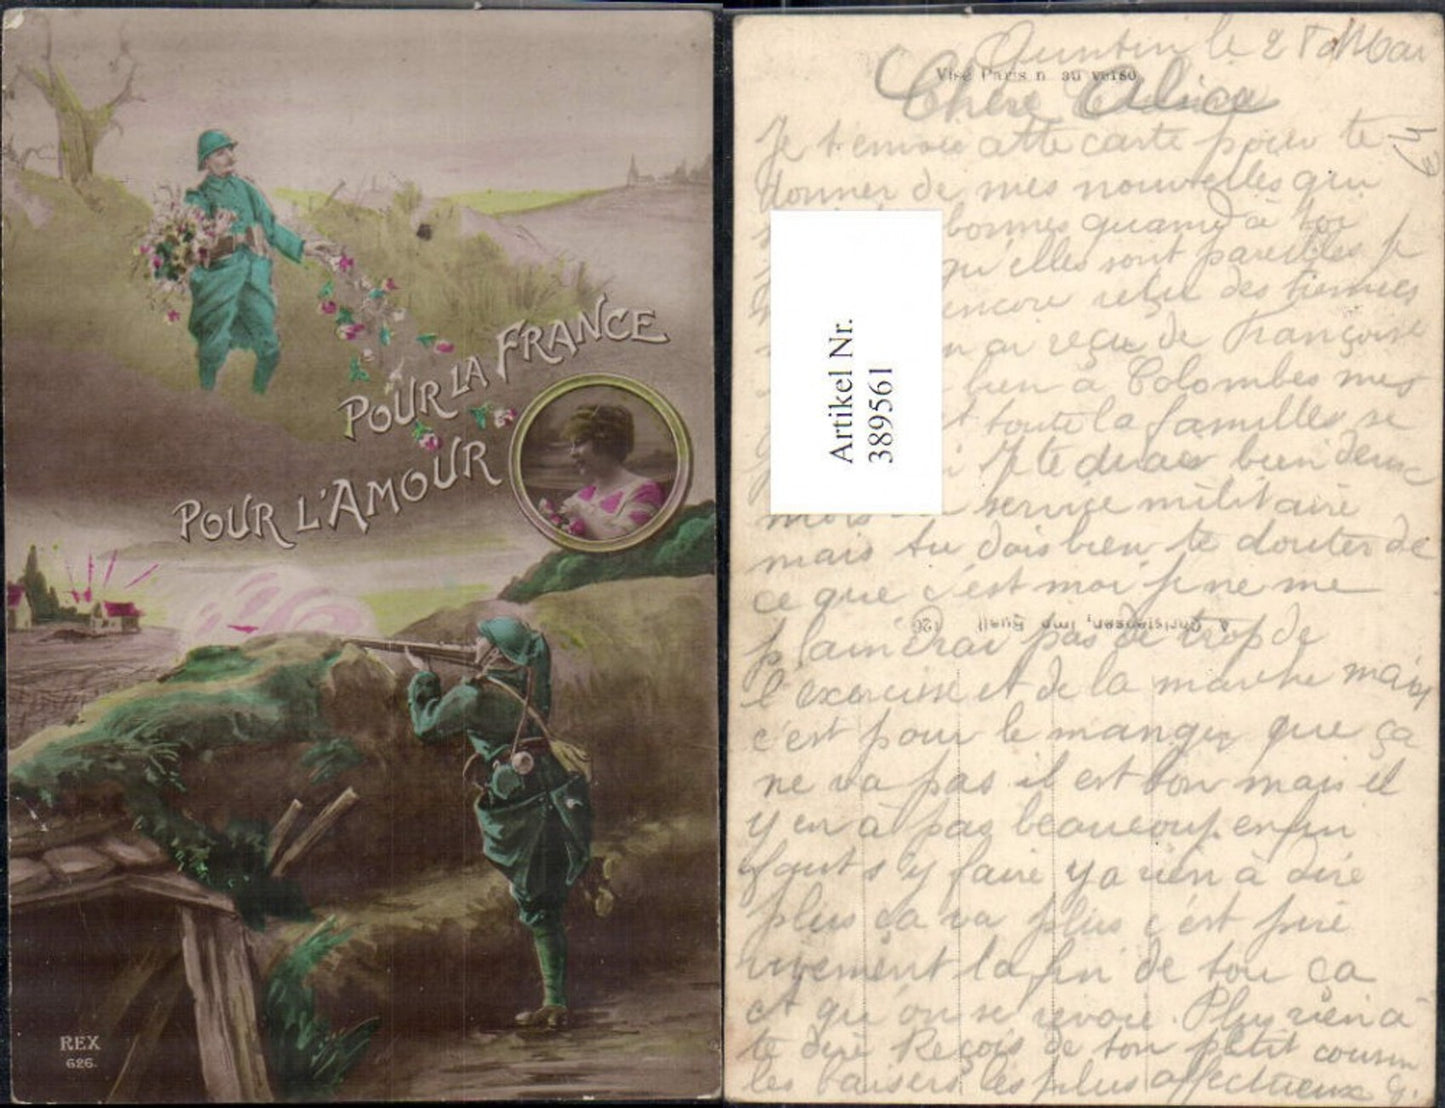 POUR LA FRANCE
POUR L'AMOUR
REX
626.
Quintin le 28 Mai
Visé Paris n. au verso
Chère Alice
Je t'envoie cette carte pour te
donner de mes nouvelles qui
bonnes quand à toi
qu'elles sont pareilles je
encore reçu des tiennes
ai reçu de Françoise
bien à Colombes mes
toute la famille se
Je te dirais bien deux
mois service militaire
mais tu dois bien te douter de
ce que c'est moi je ne me
Christensen, imp. Suall 126
plaindrai pas de trop de
l'exercise et de la marche mais
c'est pour le manger que ça
ne va pas il est bon mais il
y en à pas beaucoup enfin
faut s'y faire y a rien à dire
plus ça va plus c'est pire
vivement la fin de tou ça
et qu'on se revoie. Plus rien à
te dire Reçois de ton petit cousin
les baisers les plus affectueux G.
Artikel Nr.
389561